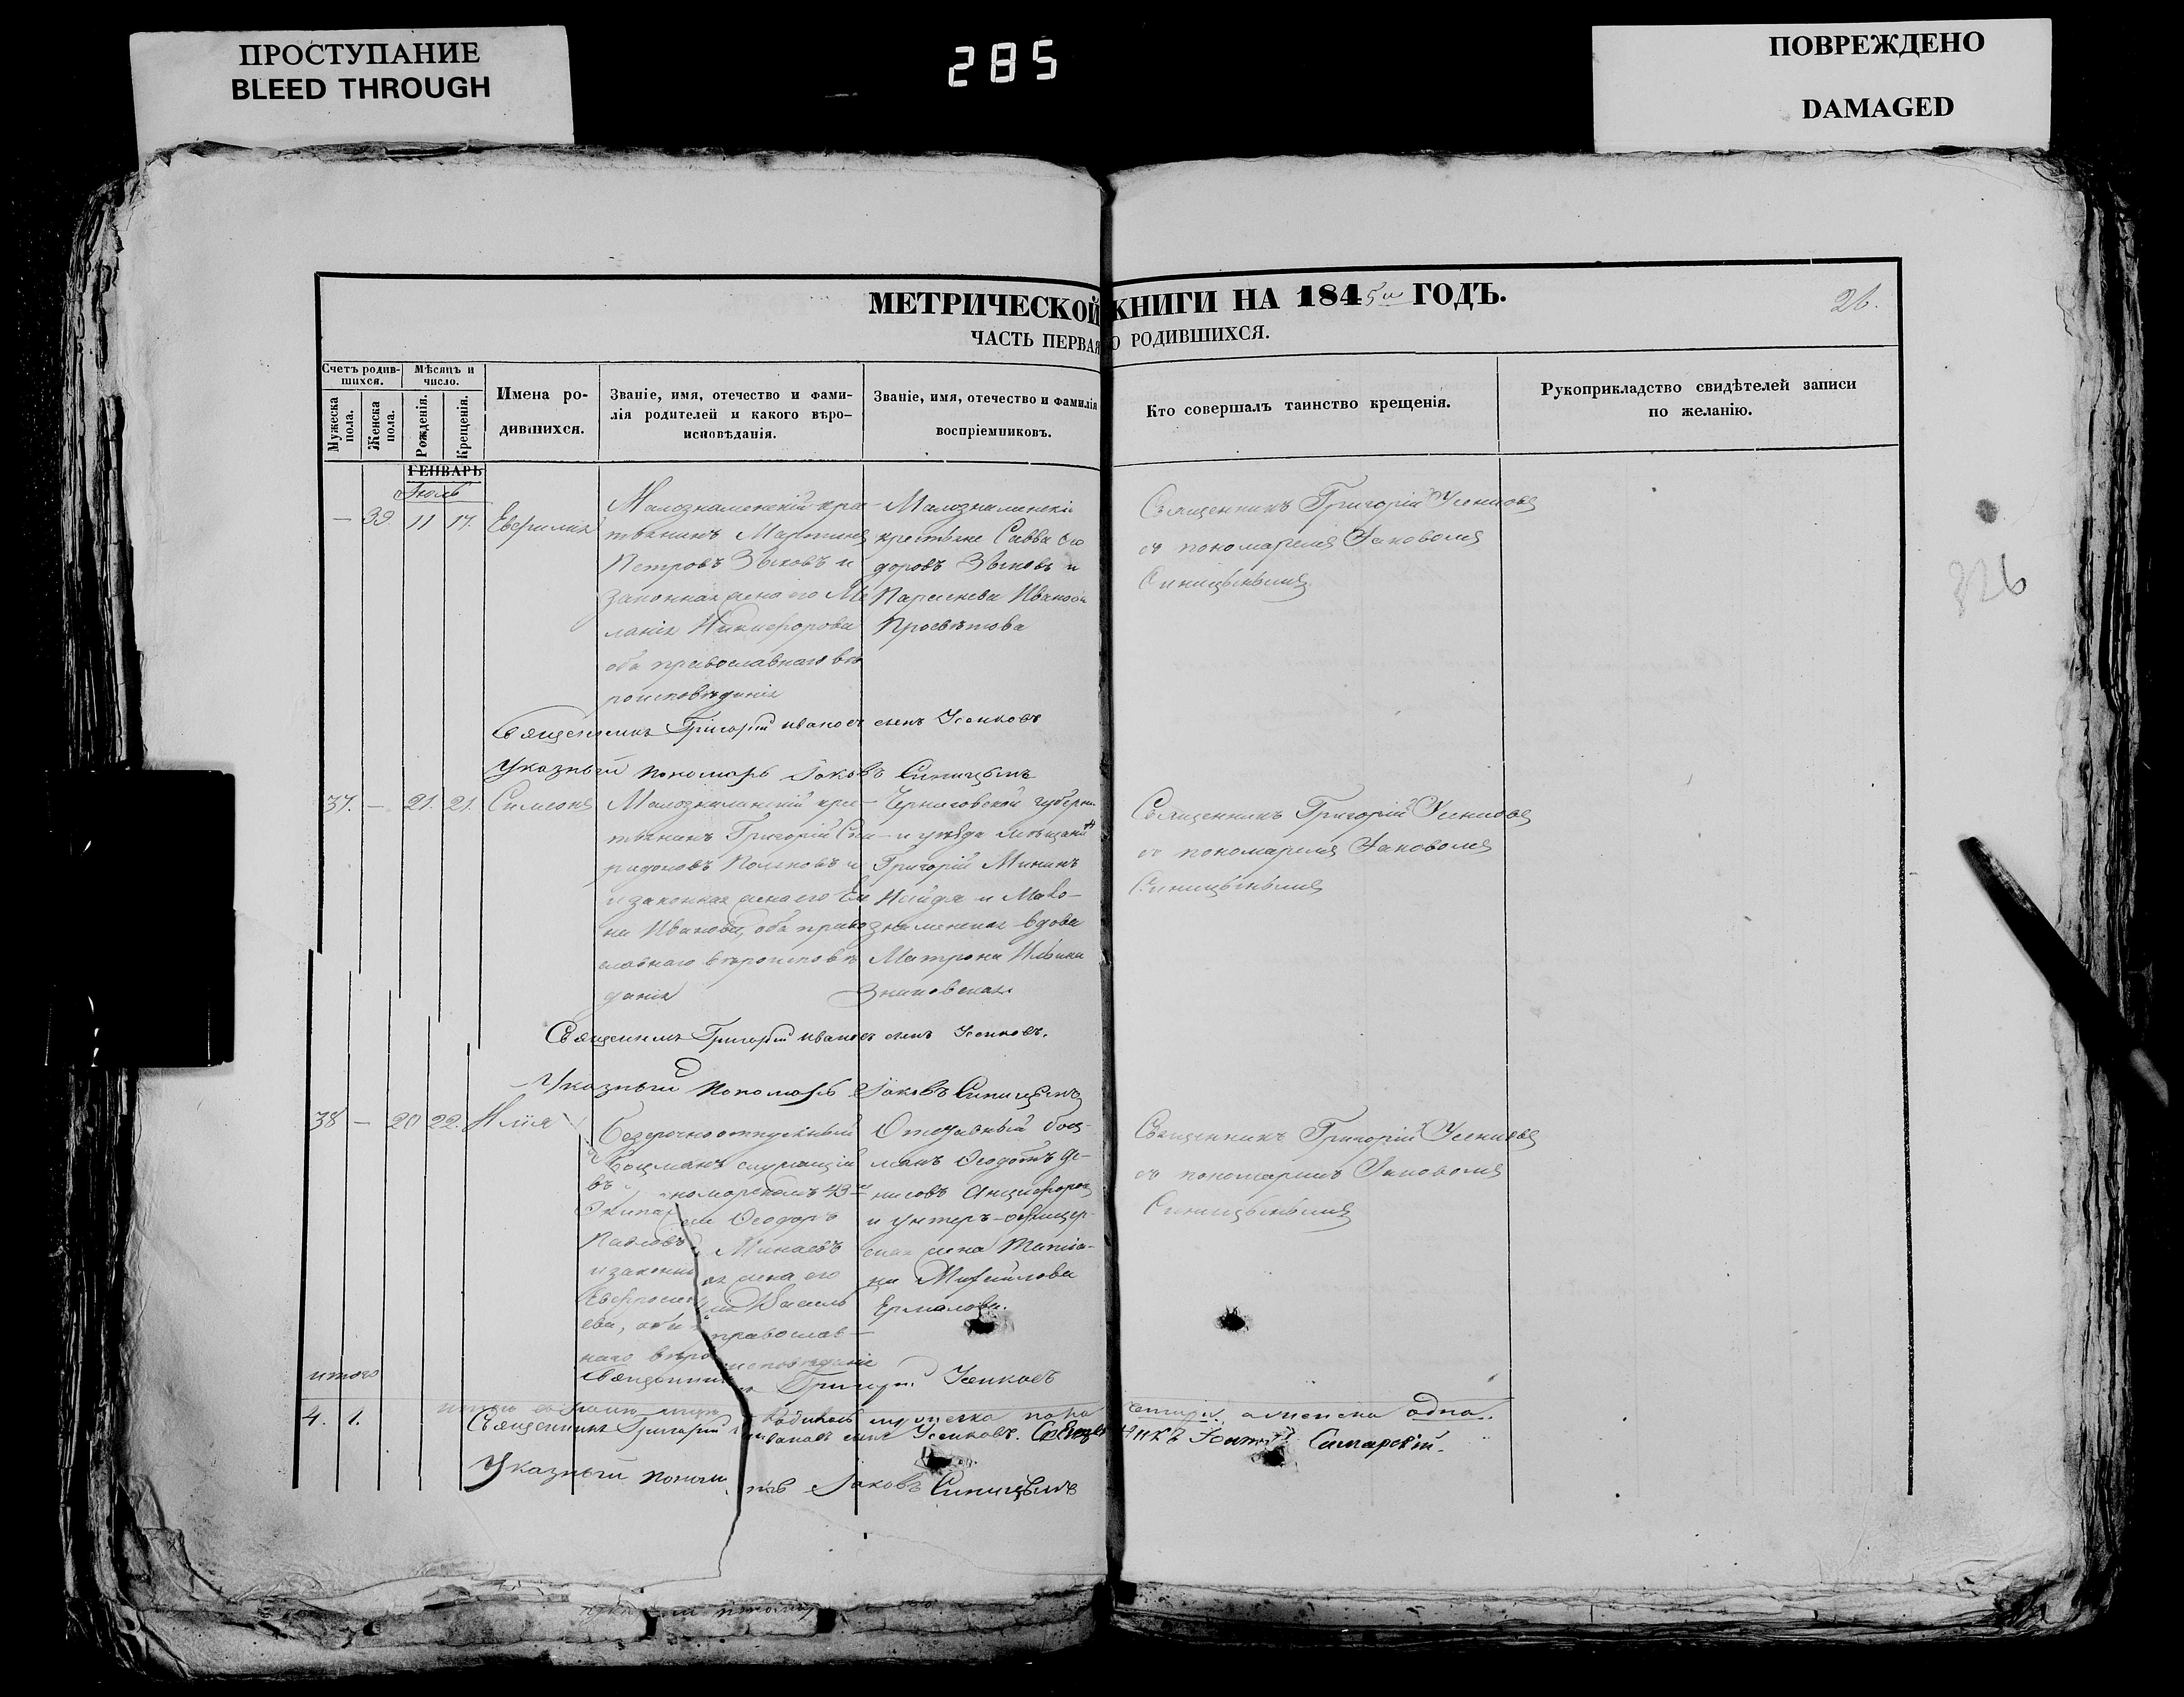 ПРОСТУПАНИЕ
BLEED THROUGH
285
ПОВРЕЖДЕНО
DAMAGED
МЕТРИЧЕСКОЙ КНИГИ НА 1845й ГОДЪ.
26.
ЧАСТЬ ПЕРВАЯ О РОДИВШИХСЯ.
Счетъ родив-
шихся.
Мужеска
пола.
Женска
пола.
Мѣсяцъ и
число.
Рожденія.
Крещенія.
Имена ро-
дившихся.
Званіе, имя, отечество и фами-
лія родителей и какого вѣро-
исповѣданія.
Званіе, имя, отечество и фамилія
воспріемниковъ.
Кто совершалъ таинство крещенія.
Рукоприкладство свидѣтелей записи
по желанію.
ГЕНВАРЬ
Іюль
— 39 11 17. Евфимія
Малознаменскій крес-
тьянинъ Мартинъ
Петровъ Зыковъ и
законная жена его Ме
ланія Никифорова
оба православнаго вѣ
роисповѣданія
Малознаменскіе
крестьяне Савва Сі
доровъ Зыковъ и
Параскева Иванова
Просвѣтова
Священникъ Григорій Усенковъ
съ пономаремъ Іаковомъ
Синицынымъ
326
Священникъ Григорій Ивановъ сынъ Усенковъ
Указный пономарь Іаковъ Синицынъ
37. — 21. 21. Симеонъ
Малознаменскій крес-
тьянинъ Григорій Спи-
ридоновъ Поляковъ и
законная жена его Еле
на Иванова, оба право
славнаго вѣроисповѣ
данія
Черниговской губерніи
и уѣзда мѣщанинъ
Григорій Мининъ
Найда и Мало-
знаменская вдова
Матрона Ильина
Священникъ Григорій Усенковъ
съ пономаремъ Іаковомъ
Синицынымъ
Священникъ Григорій Ивановъ сынъ Усенковъ.
Указный Пономарь Іаковъ Синицынъ
38 — 20 22. Илія
Безсрочноотпускный
Боцманъ служащій
въ номорскомъ 43м
Экипа Ѳеодоръ
Павловъ Минаевъ
и законн ая жена его
Евфросин ія Василь
ева, оба православ-
наго вѣро исповѣданія
Отставный боц-
манъ Ѳеодотъ Де-
нисовъ Анциферовъ
и унтеръ-офицер-
ская жена Татія-
на Михайлова
Ермолова.
Священникъ Григорій Усенковъ
съ пономаремъ Іаковомъ
Синицынымъ
Священник ъ Григорій Усенковъ
итого
4. 1.
родилось мужеска пола четыри, а женска одна.
Священникъ Григорій Ивановъ сынъ Усенковъ. Священникъ Самарскій.
Указный Понома рь Іаковъ Синицынъ